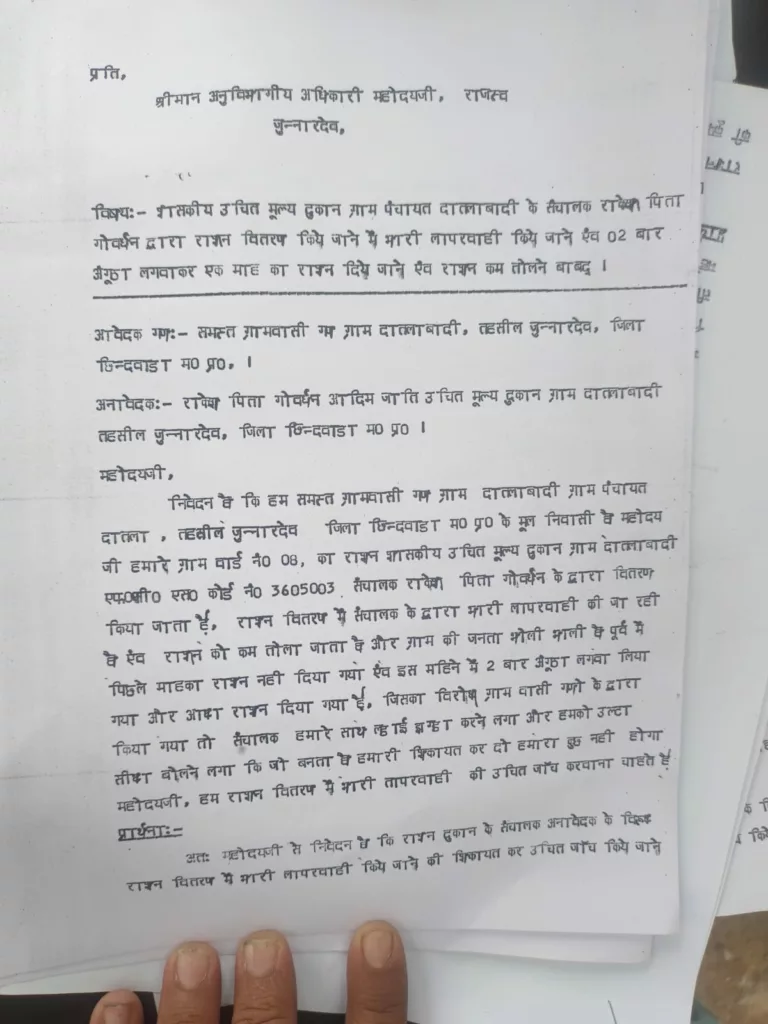 प्रति,
श्रीमान अनुविभागीय अधिकारी महोदयजी, राजस्व
जुन्नारदेव,
विषय:- शासकीय उचित मूल्य दुकान ग्राम पंचायत दातलाबादी के संचालक राकेश पिता
गोवर्धन द्वारा राशन वितरण किये जाने में भारी लापरवाही किये जाने एंव 02 बार
अंगूठा लगवाकर एक माह का राशन दिये जाने एंव राशन कम तोलने बाबद् ।
आवेदक गण:- समस्त ग्रामवासी गण ग्राम दातलाबादी, तहसील जुन्नारदेव, जिला
छिन्दवाडा म0 प्र0, ।
अनावेदक:- राकेश पिता गोवर्धन आदिम जाति उचित मूल्य दुकान ग्राम दातलाबादी
तहसील जुन्नारदेव, जिला छिन्दवाडा म0 प्र0 ।
महोदयजी,
निवेदन है कि हम समस्त ग्रामवासी गण ग्राम दातलाबादी ग्राम पंचायत
दातला , तहसील जुन्नारदेव जिला छिन्दवाडा म0 प्र0 के मूल निवासी है महोदय
जी हमारे ग्राम वार्ड नं0 08, का राशन शासकीय उचित मूल्य दुकान ग्राम दातलाबादी
एफ0पी0 एस0 कोर्ड नं0 3605003 संचालक राकेश पिता गोवर्धन के द्वारा वितरण
किया जाता है, राशन वितरण में संचालक के द्वारा भारी लापरवाही की जा रही
है एंव राशन को कम तोला जाता है और ग्राम की जनता भोली भाली है पूर्व में
पिछले माहका राशन नही दिया गया एंव इस महिने में 2 बार अंगूठा लगवा लिया
गया और आधा राशन दिया गया है, जिसका विरोध ग्राम वासी गणो के द्वारा
किया गया तो संचालक हमारे साथ लडाई झगडा करने लगा और हमको उल्टा
सीधा बोलने लगा कि जो बनता है हमारी शिकायत कर दो हमारा कुछ नही होगा
महोदयजी, हम राशन वितरण में भारी लापरवाही की उचित जॉच करवाना चाहते है
प्रार्थना:-
अतः महोदयजी से निवेदन है कि राशन दुकान के संचालक अनावेदक के विरूद्ध
राशन वितरण में भारी लापरवाही किये जाने की शिकायत कर उचित जॉच किये जाने